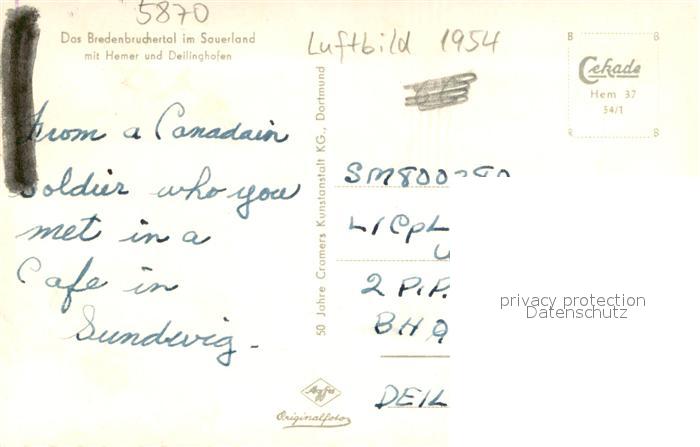 5870
Das Bredenbruchertal im Sauerland
mit Hemer und Deilinghofen
Luftbild 1954
B B
Cekade
Hem 37
54/1
B B
From a Canadain
Soldier who you
met in a
Cafe in
Sundwig.
50 Jahre Cramers Kunstanstalt KG., Dortmund
SM800
L/CpL
U
2 P.P.
BHQ
DEIL
privacy protection
Datenschutz
Agfa
Originalfoto